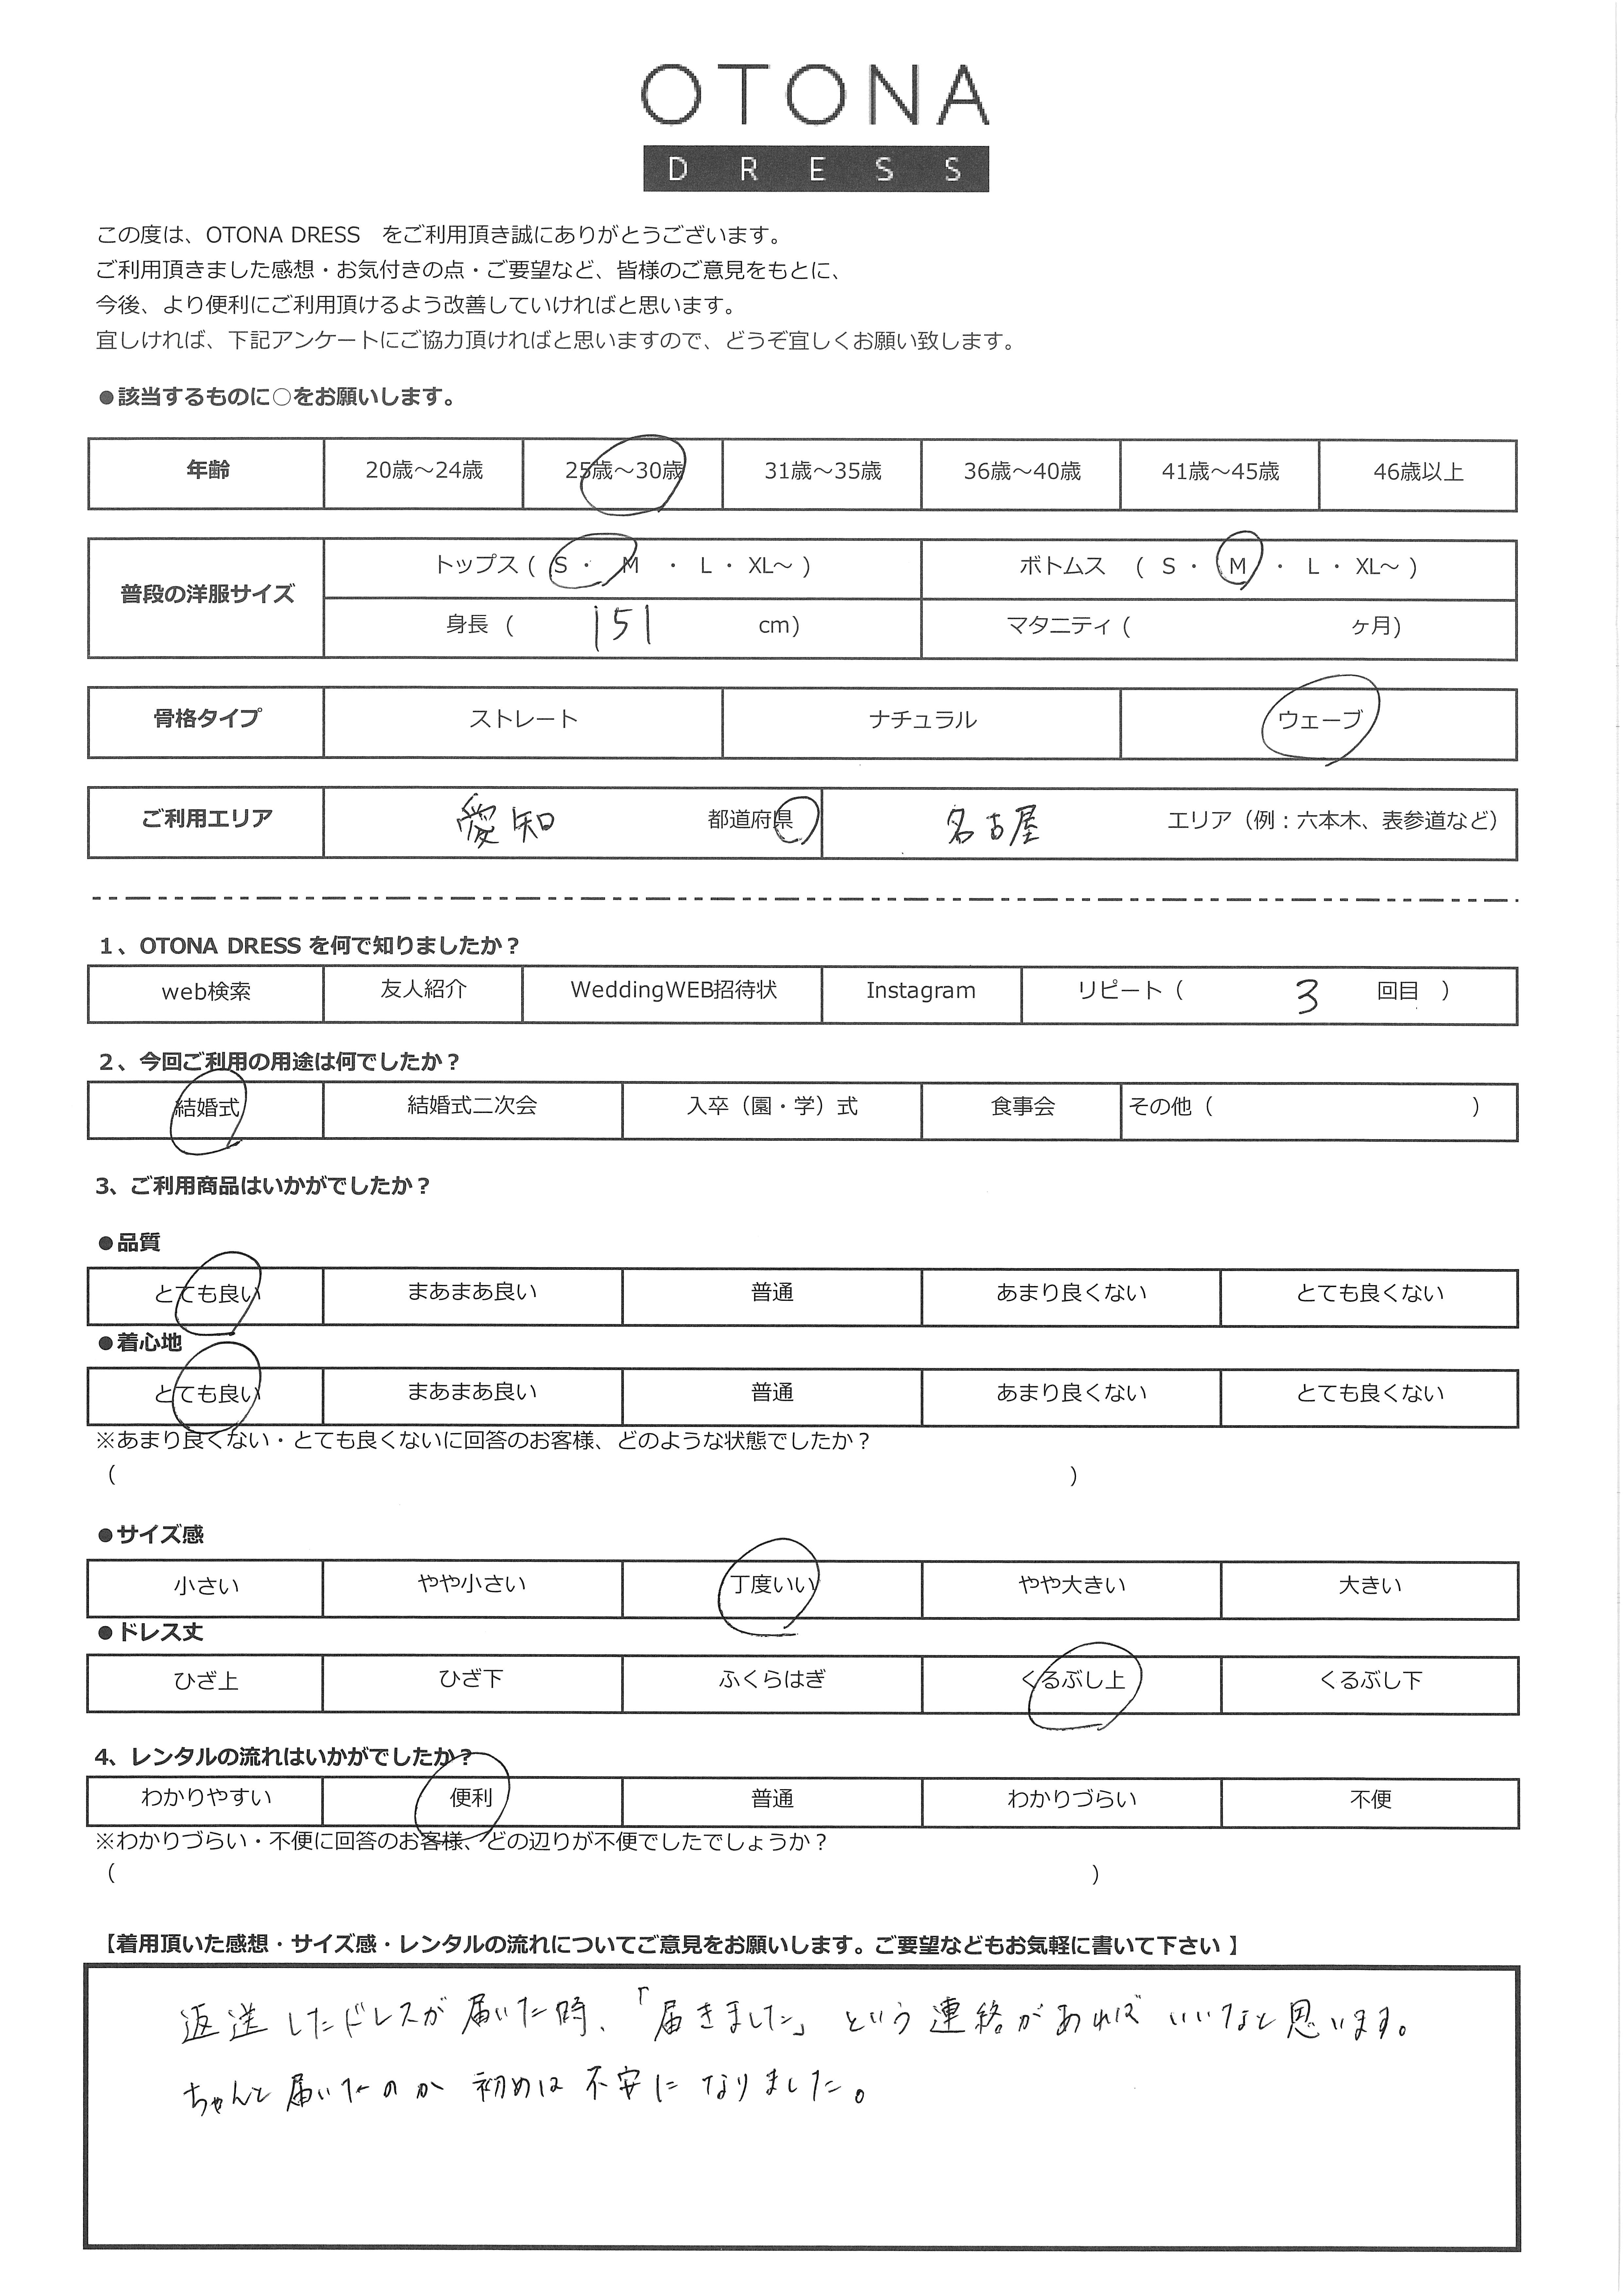 OTONA
DRESS
この度は、OTONA DRESS　をご利用頂き誠にありがとうございます。
ご利用頂きました感想・お気付きの点・ご要望など、皆様のご意見をもとに、
今後、より便利にご利用頂けるよう改善していければと思います。
宜しければ、下記アンケートにご協力頂ければと思いますので、どうぞ宜しくお願い致します。
●該当するものに○をお願いします。
年齢 20歳～24歳 25歳～30歳 31歳～35歳 36歳～40歳 41歳～45歳 46歳以上
普段の洋服サイズ トップス ( S ・ M ・ L ・ XL～ ) ボトムス ( S ・ M ・ L ・ XL～ )
身長 ( 151 cm) マタニティ ( ヶ月)
骨格タイプ ストレート ナチュラル ウェーブ
ご利用エリア 愛知 都道府県 名古屋 エリア（例：六本木、表参道など）
1、OTONA DRESS を何で知りましたか？
web検索 友人紹介 WeddingWEB招待状 Instagram リピート（ 3 回目 ）
2、今回ご利用の用途は何でしたか？
結婚式 結婚式二次会 入卒（園・学）式 食事会 その他（ ）
3、ご利用商品はいかがでしたか？
●品質
とても良い まあまあ良い 普通 あまり良くない とても良くない
●着心地
とても良い まあまあ良い 普通 あまり良くない とても良くない
※あまり良くない・とても良くないに回答のお客様、どのような状態でしたか？
（ ）
●サイズ感
小さい やや小さい 丁度いい やや大きい 大きい
●ドレス丈
ひざ上 ひざ下 ふくらはぎ くるぶし上 くるぶし下
4、レンタルの流れはいかがでしたか？
わかりやすい 便利 普通 わかりづらい 不便
※わかりづらい・不便に回答のお客様、どの辺りが不便でしたでしょうか？
（ ）
【着用頂いた感想・サイズ感・レンタルの流れについてご意見をお願いします。ご要望などもお気軽に書いて下さい 】
返送したドレスが届いた時、「届きました」という連絡があればいいなと思います。
ちゃんと届いたのか初めは不安になりました。